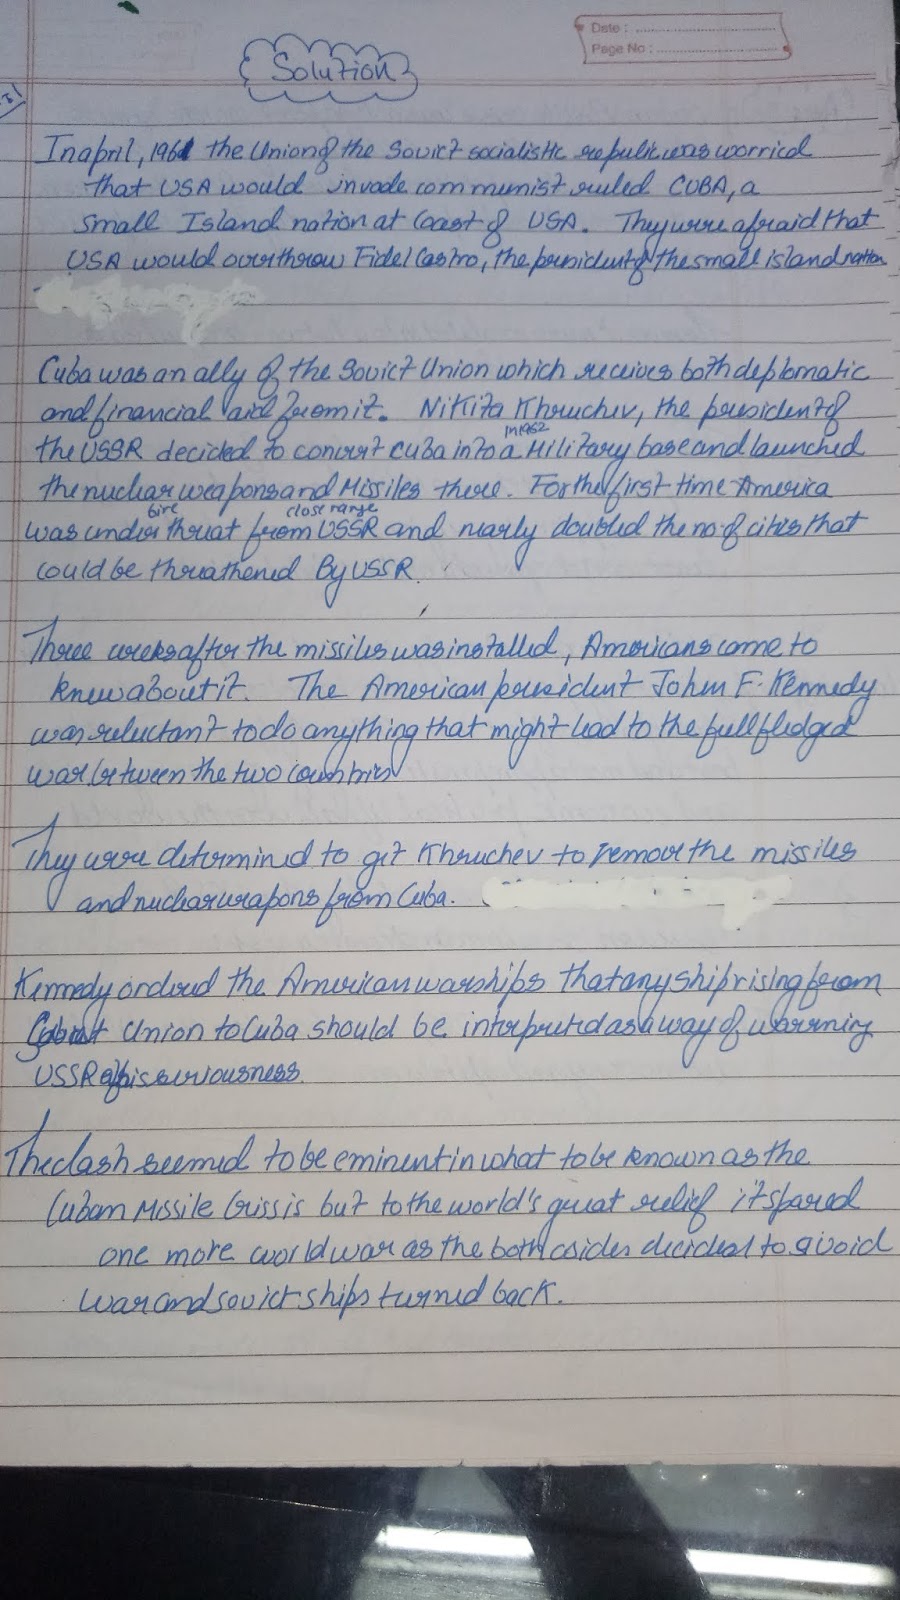 Date :
Page No :
Solution
In april, 1961 the Union of the Soviet socialistic republic were worried
that USA would invade communist ruled CUBA, a
small Island nation at coast of USA. They were afraid that
USA would overthrow Fidel Castro, the president of the small island nation
Cuba was an ally of the Soviet Union which receives both deplomatic
and financial aid from it. Nikita Khruchev, the president of
in 1962
the USSR decided to convert Cuba into a Military base and launched
the nuclear weapons and Missiles there. For the first time America
fire close range
was under threat from USSR and nearly doubled the no of cities that
could be threathened By USSR.
Three weeks after the missiles was installed, Americans come to
knew about it. The American president John F. Kennedy
was reluctant to do anything that might lead to the full fledged
war between the two countries
They were determined to get Khruchev to remove the missiles
and nuclear weapons from Cuba.
Kennedy ordered the American warships that any ship rising from
Soviet Union to Cuba should be interpreted as a way of warning
USSR of his seriousness.
The clash seemed to be eminent in what to be known as the
Cuban Missile Crissis but to the world's great relief it spared
one more world war as the both asides decided to avoid
war and soviet ships turned back.